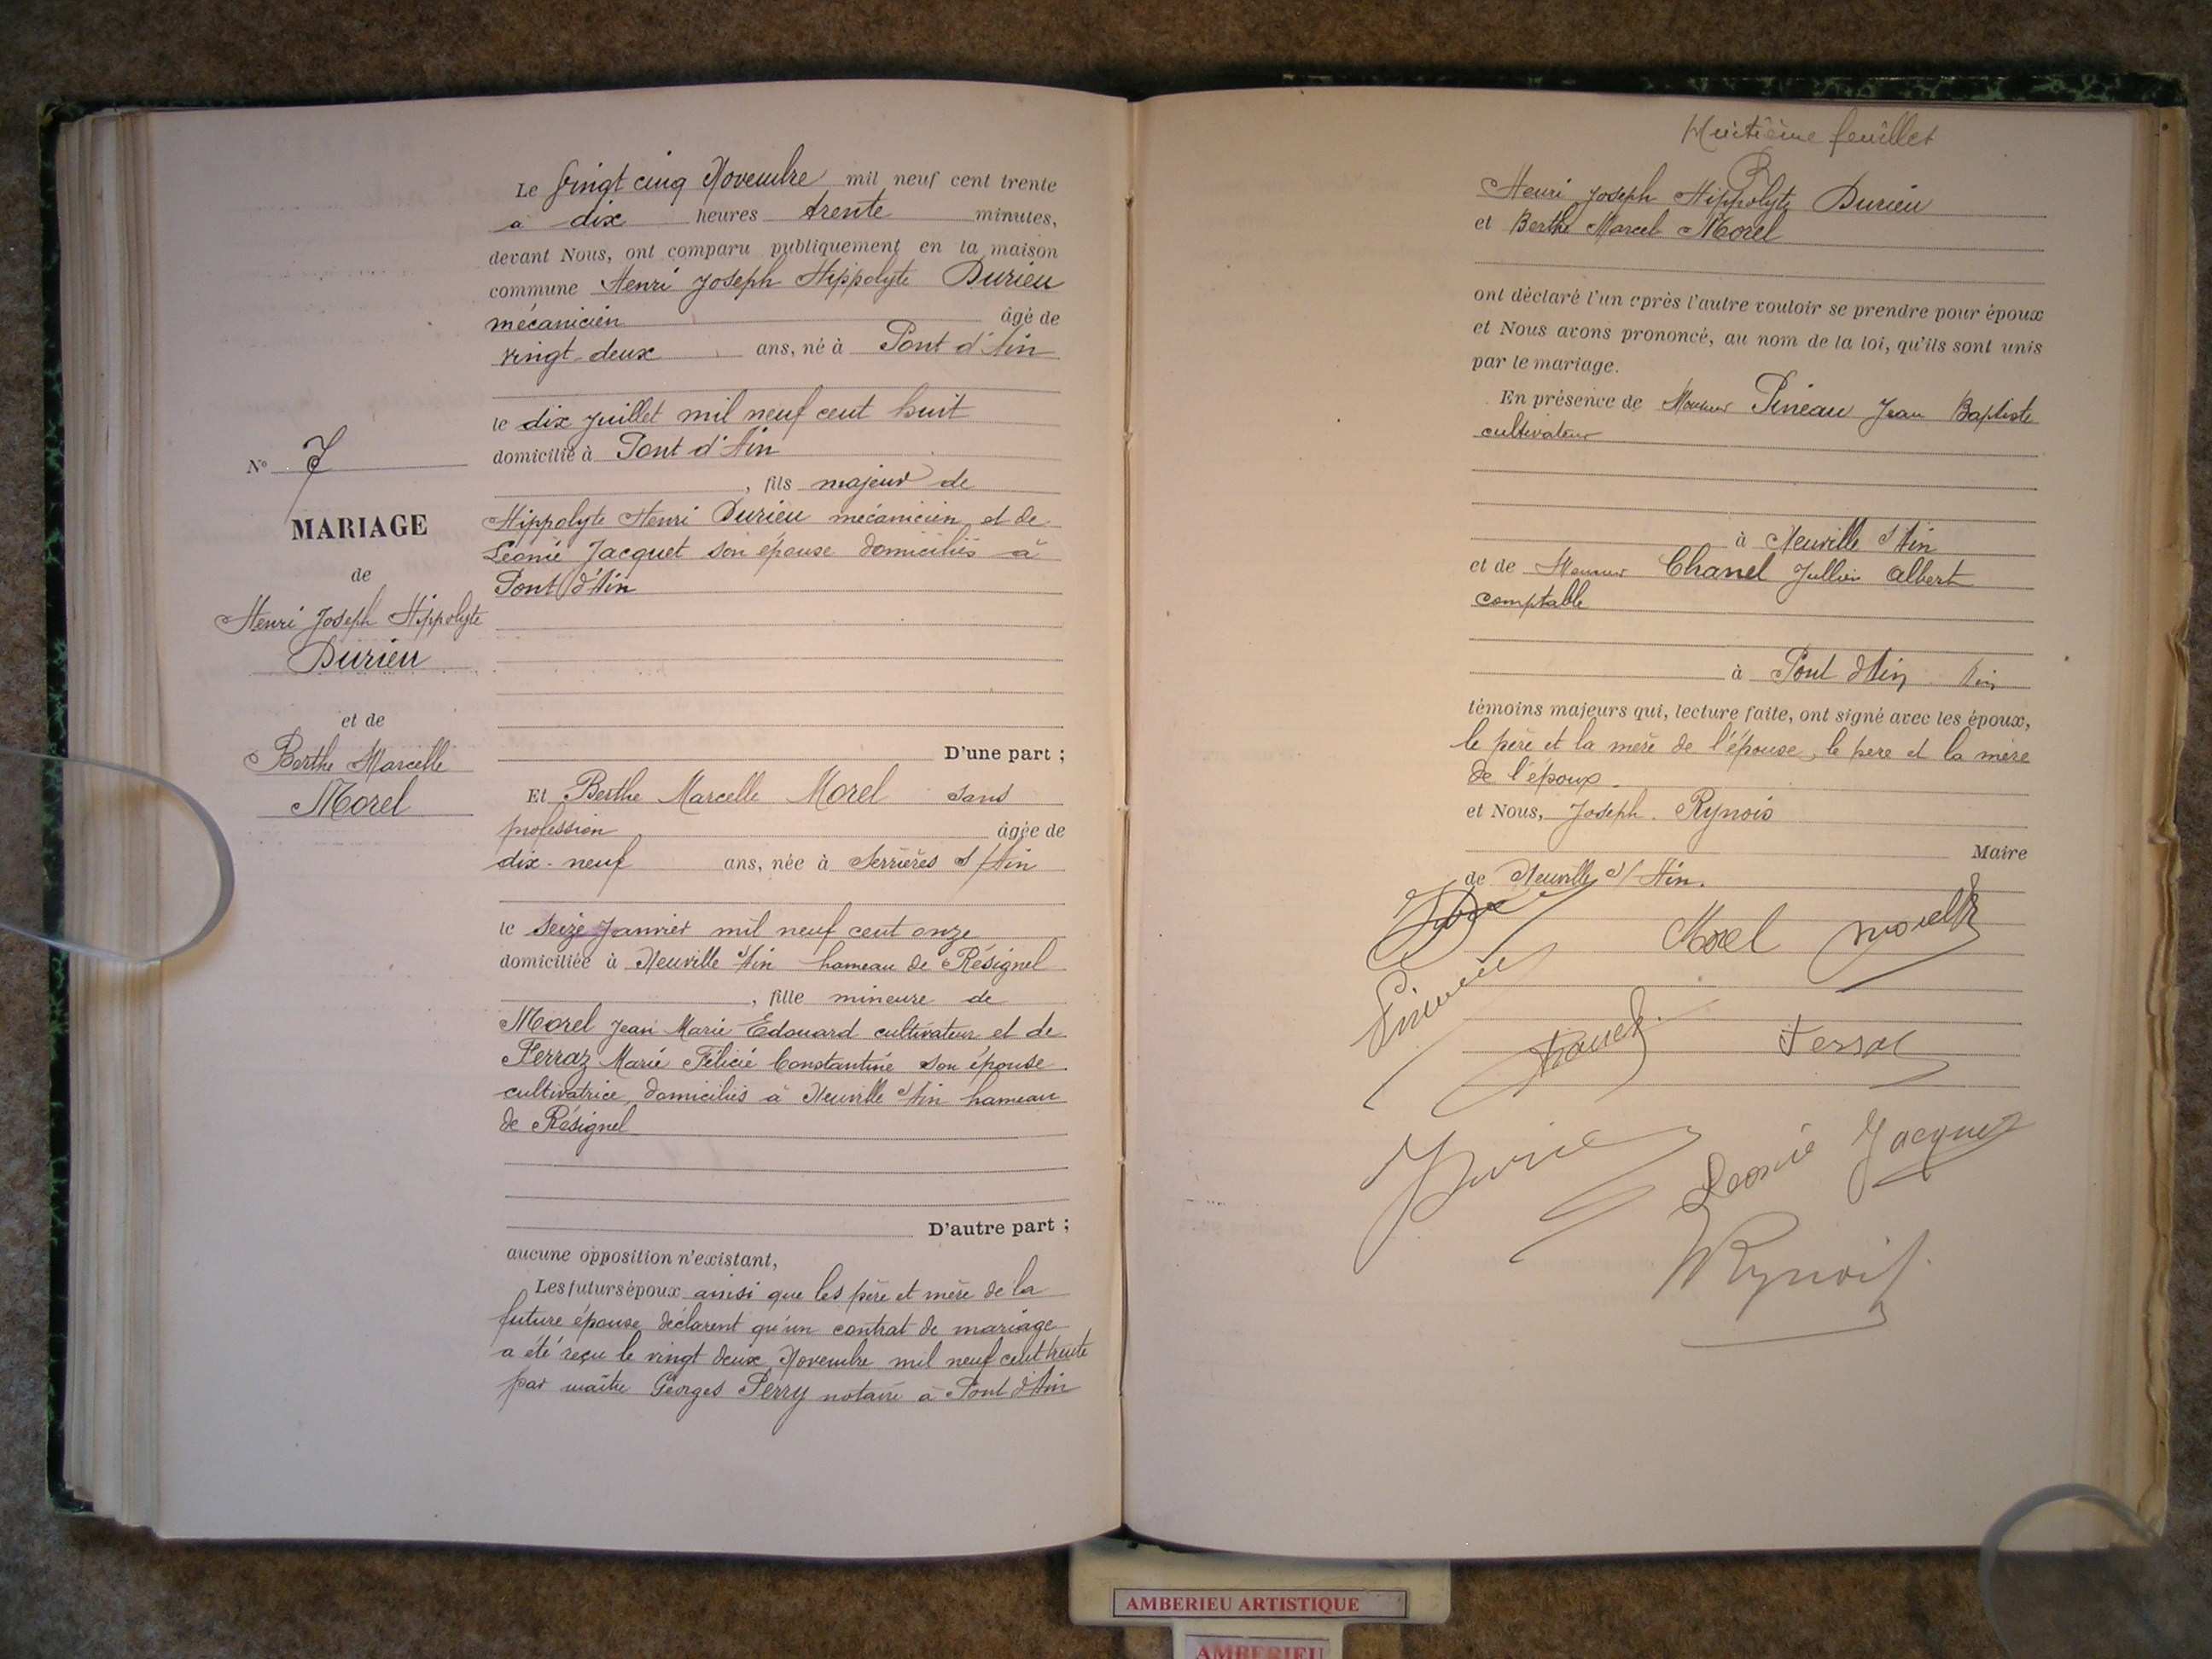 N° 7
MARIAGE
de
Henri Joseph Hippolyte
Durieu
et de
Berthe Marcelle
Morel
Le Vingt cinq Novembre mil neuf cent trente
à dix heures trente minutes,
devant Nous, ont comparu publiquement en la maison
commune Henri Joseph Hippolyte Durieu
mécanicien âgé de
vingt-deux ans, né à Pont d'Ain
le dix juillet mil neuf cent huit
domicilié à Pont d'Ain
, fils majeur de
Hippolyte Henri Durieu mécanicien et de
Léonie Jacquet son épouse domiciliés à
Pont d'Ain
D'une part ;
Et Berthe Marcelle Morel sans
profession âgée de
dix-neuf ans, née à Serrières s/Ain
le seize Janvier mil neuf cent onze
domiciliée à Neuville s/Ain hameau de Résignel
, fille mineure de
Morel Jean Marie Edouard cultivateur et de
Ferraz Marie Félicie Constantine son épouse
cultivatrice, domiciliés à Neuville s/Ain hameau
de Résignel
D'autre part ;
aucune opposition n'existant,
Les futurs époux ainsi que les père et mère de la
future épouse déclarent qu'un contrat de mariage
a été reçu le vingt deux Novembre mil neuf cent trente
par maître Georges Perry notaire à Pont d'Ain
Huitième feuillet
Henri Joseph Hippolyte Durieu
et Berthe Marcel Morel
ont déclaré l'un après l'autre vouloir se prendre pour époux
et Nous avons prononcé, au nom de la loi, qu'ils sont unis
par le mariage.
En présence de Monsieur Pineau Jean Baptiste
cultivateur
à Neuville s/Ain
et de Monsieur Chanel Jullien Albert
comptable
à Pont d'Ain Ain
témoins majeurs qui, lecture faite, ont signé avec les époux,
le père et la mère de l'épouse, le père et la mère
de l'époux.
et Nous, Joseph Rynois
Maire
de Neuville s/Ain.
Morel
Pineau
Chanel
Durieu
Léonie Jacquet
Rynois
AMBERIEU ARTISTIQUE
AMBERIEU